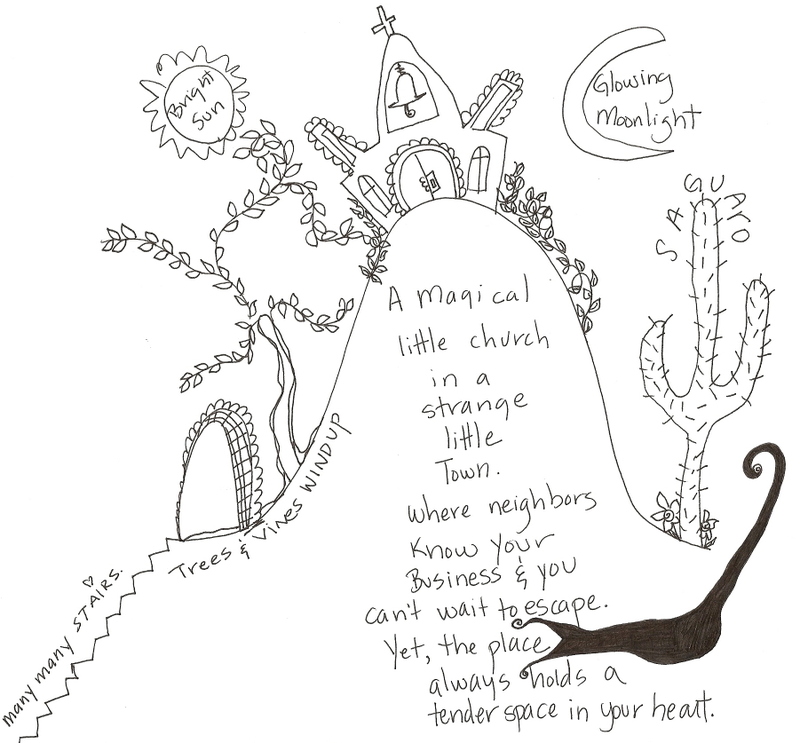 Bright
Sun
Glowing
Moonlight
SAGUARO
A magical
little church
in a
strange
little
Town.
where neighbors
know your
Business & you
can't wait to escape.
Yet, the place
always holds a
tender space in your heart.
Trees & Vines WINDUP
many many STAIRS.